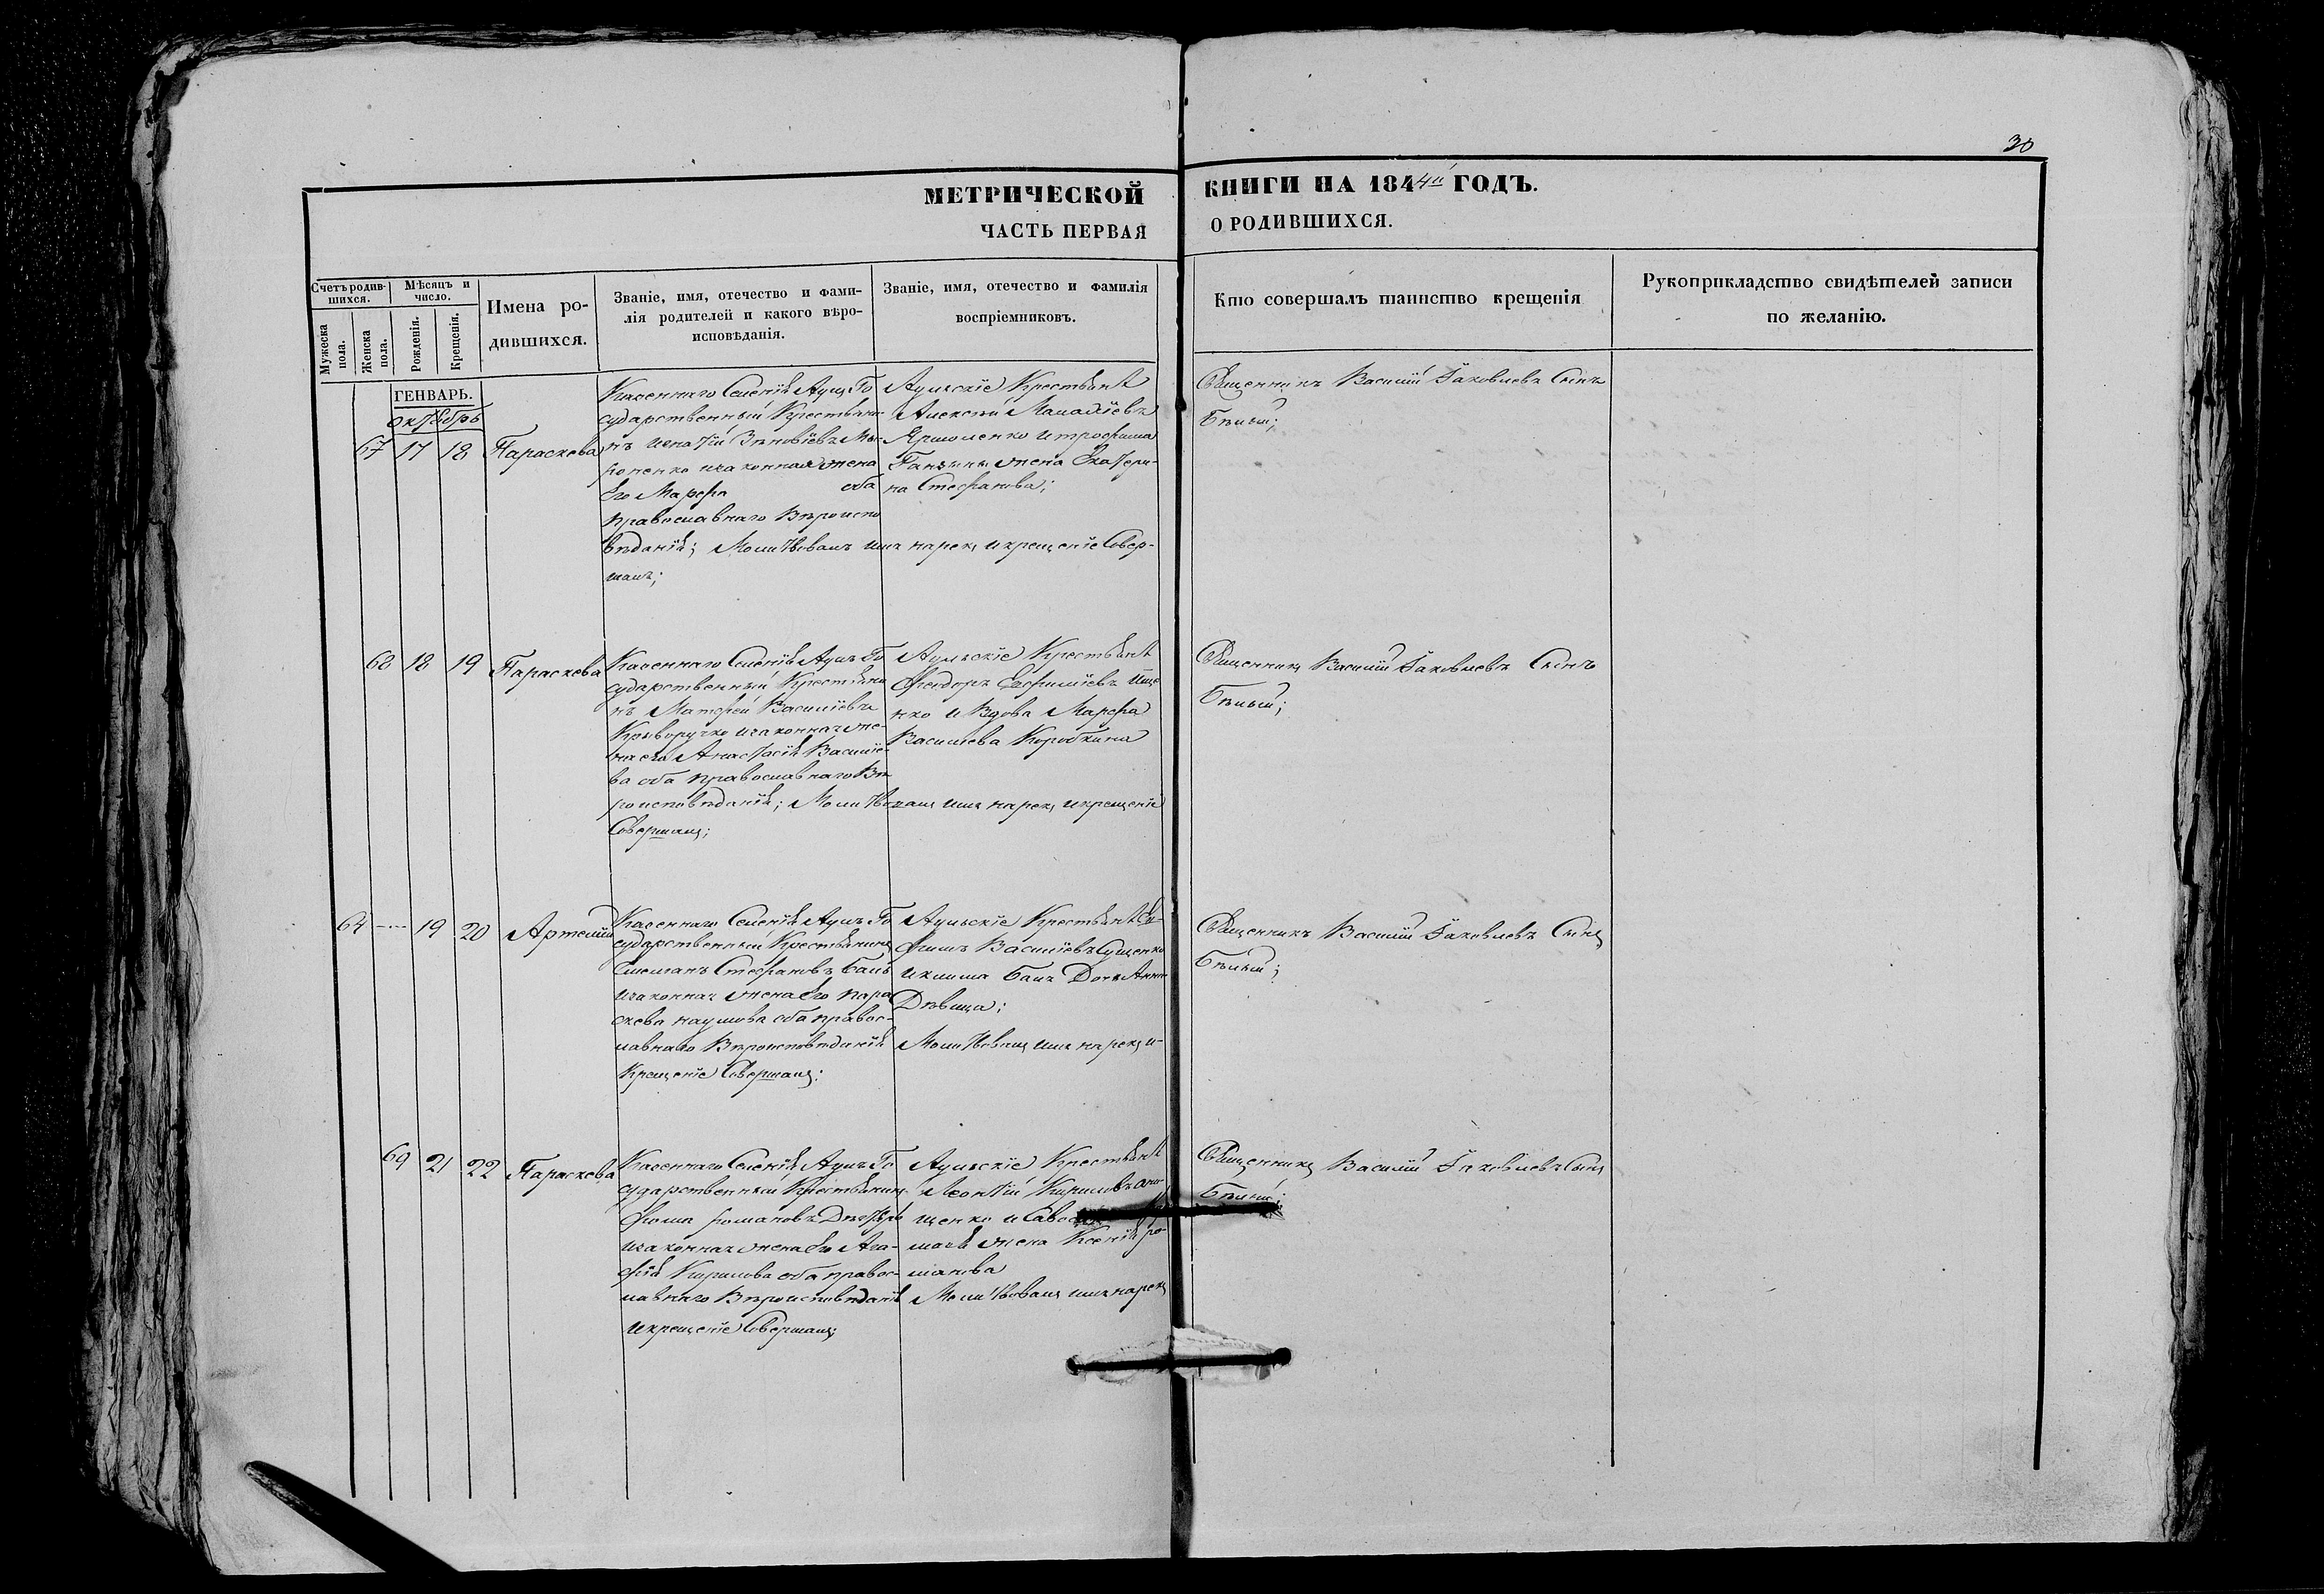 30
МЕТРИЧЕСКОЙ КНИГИ НА 1844й ГОДЪ.
ЧАСТЬ ПЕРВАЯ О РОДИВШИХСЯ.
Счетъ родившихся.
Мужеска пола.
Женска пола.
Мѣсяцъ и число.
Рожденія.
Крещенія.
Имена родившихся.
Званіе, имя, отечество и фамилія родителей и какого вѣроисповѣданія.
Званіе, имя, отечество и фамилія воспріемниковъ.
Кто совершалъ таинство крещенія
Рукоприкладство свидѣтелей записи по желанію.
ГЕНВАРЬ.
октябрь
67 17 18 Параскева
Казеннаго Селенія Аулъ Го
сударственный Крестьяни
нъ Игнатій
роненко изаконная жена
Его Марфа оба
православнаго Вѣроиспо
вѣданія; Молитвовалъ имя нарекъ икрещеніе Совер-
шалъ;
Аульскіе Крестьяне
Алексѣй
Ярмоленко итрофима
жена Екатери-
на Стефанова;
Священникъ Василій Іаковлевъ Сынъ
Бѣлый;
68 18 19 Параскева
Казеннаго Селенія Аулъ Го
сударственный Крестьяни
нъ Матфей Василіевъ
Криворучко изаконная же-
на его Анастасія Василіе-
ва оба православнаго Вѣ
роисповѣданія; Молитвовалъ имя нарекъ икрещеніе
Совершалъ;
Аульскіе Крестьяне
Феодоръ Евфиміевъ Ище
нко и Вдова Марфа
Василіева Коробкина
Священникъ Василій Іаковлевъ Сынъ
Бѣлый;
64 --- 19 20 Артемій
Казеннаго Селенія Аулъ Го
сударственный Крестьянинъ
Стефановъ Баль
изаконная жена Его Пара
скева наумова оба правос-
лавнаго Вѣроисповѣданія Молитвовалъ имя нарекъ и-
Крещеніе Совершалъ;
Аульскіе Крестьяне Еѵ-
фимъ Василіевъ Сущенко
Дочь Анна
Дѣвица;
Священникъ Василій Іаковлевъ Сынъ
Бѣлый;
69 21 22 Параскева
Казеннаго Селенія Аулъ Го
сударственный Крестьянинъ
Фома романовъ
изаконная жена Его Ага-
фія Кирилова оба правос-
лавнаго Вѣроисповѣданія Молитвовалъ имя нарекъ
икрещеніе Совершалъ;
Аульскіе Крестьяне
Леонтій Кириловъ Они-
щенко и
жена Ксенія ро-
манова
Священникъ Василій Іаковлевъ Сынъ
Бѣлый;